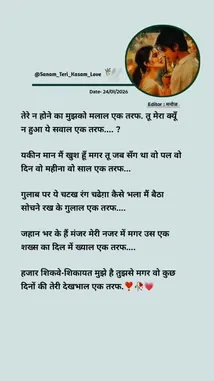 @Sanam_Teri_Kasam_Love 🕊️
Date- 24/01/2026
Editor : मनोज
तेरे न होने का मुझको मलाल एक तरफ. तू मेरा क्यूँ
न हुआ ये सवाल एक तरफ.... ?
यकीन मान मैं खुश हूँ मगर तू जब सँग था वो पल वो
दिन वो महीना वो साल एक तरफ...
गुलाब पर ये चटख रंग चढेगा कैसे भला मैं बैठा
सोचने रख के गुलाल एक तरफ....
जहान भर के हैं मंजर मेरी नजर में मगर उस एक
शख्स का दिल में ख्याल एक तरफ....
हजार शिकवे-शिकायत मुझे है तुझसे मगर वो कुछ
दिनों की तेरी देखभाल एक तरफ.❣️🥀💗